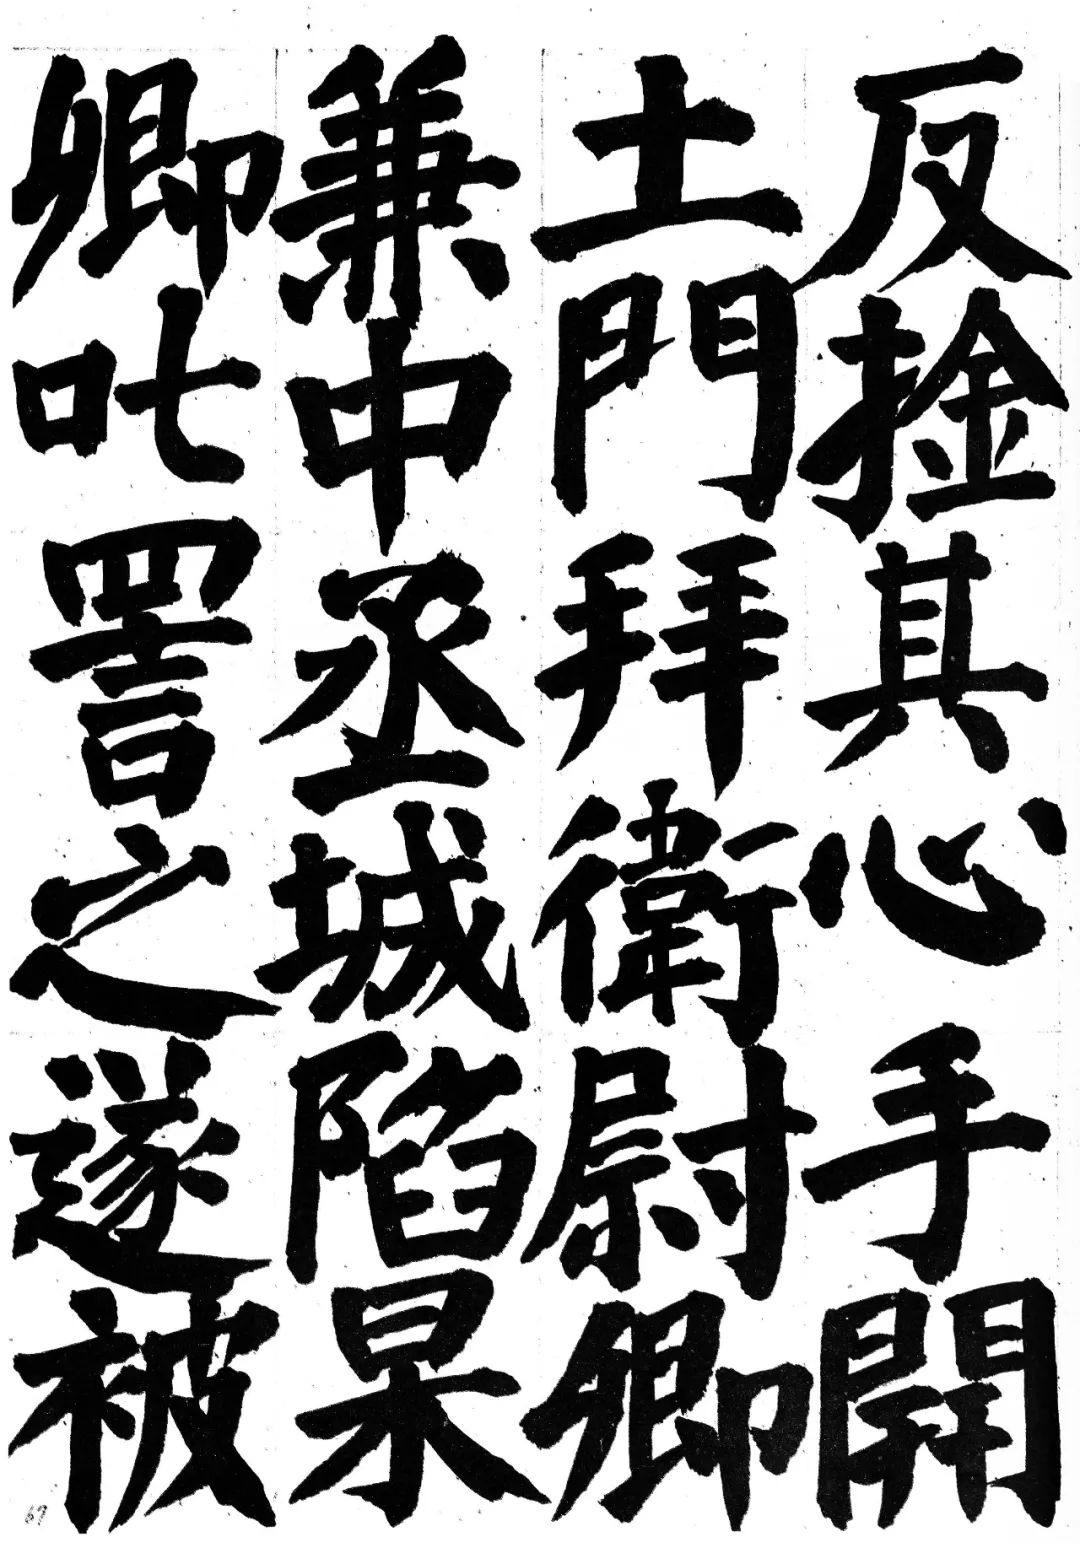 反捦其心手開
土門拜衛尉卿
兼中丞城陷杲
卿叱詈之遂被
67